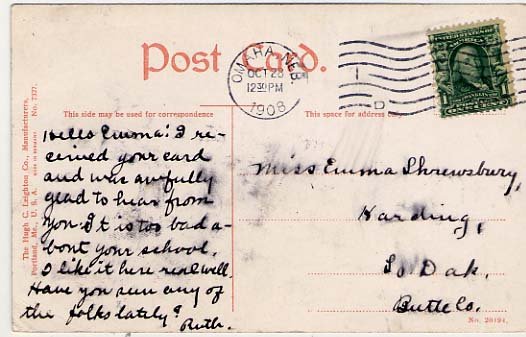 Post Card.
OMAHA, NEB.
OCT 28
12 30 PM
1908
D
This side may be used for correspondence
This space for address only.
The Hugh C. Leighton Co., Manufacturers,
Portland, Me., U. S. A.
No. 7327.
Hello Emma! I re-
ceived your card
and was awfully
glad to hear from
you. It is too bad a-
bout your school.
I like it here real well.
Have you seen any of
the folks lately?
Ruth.
Miss Emma Shrewsbury,
Harding,
So Dak.
Butte Co.
No. 28194.